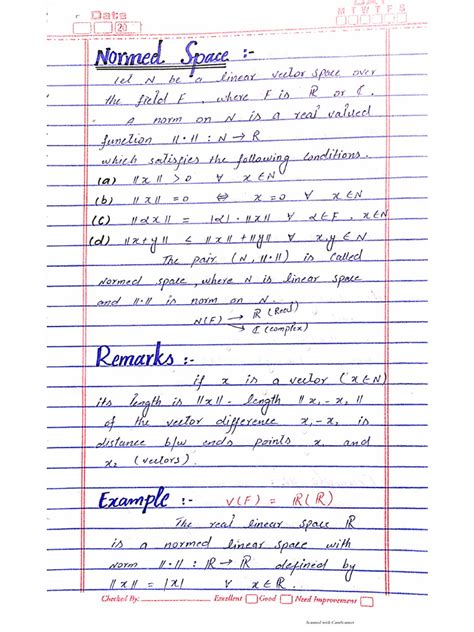 Date
20
M T W T F S
Normed Space :-
Let N be a linear vector space over
the field F, where F is ℝ or ℂ.
A norm on N is a real valued
function ||·|| : N → ℝ
which satisfies the following conditions.
(a) ||x|| > 0 ∀ x ∈ N
(b) ||x|| = 0 ⇔ x = 0 ∀ x ∈ N
(c) ||αx|| = |α| · ||x|| ∀ α ∈ F, x ∈ N
(d) ||x+y|| ≤ ||x|| + ||y|| ∀ x, y ∈ N
The pair (N, ||·||) is called
Normed space, where N is linear space
and ||·|| is norm on N.
N(F) → ℝ (Real)
→ ℂ (complex)
Remarks :-
if x is a vector (x ∈ N)
its length is ||x|| - length ||x, - x, ||
of the vector difference x, - x, is
distance b/w ends points x, and
x₂ (vectors).
Example :- V(F) = ℝ(ℝ)
The real linear space ℝ
is a normed linear space with
norm ||·|| : ℝ → ℝ defined by
||x|| = |x| ∀ x ∈ ℝ.
Checked By: Excellent Good Need Improvement
Scanned with CamScanner